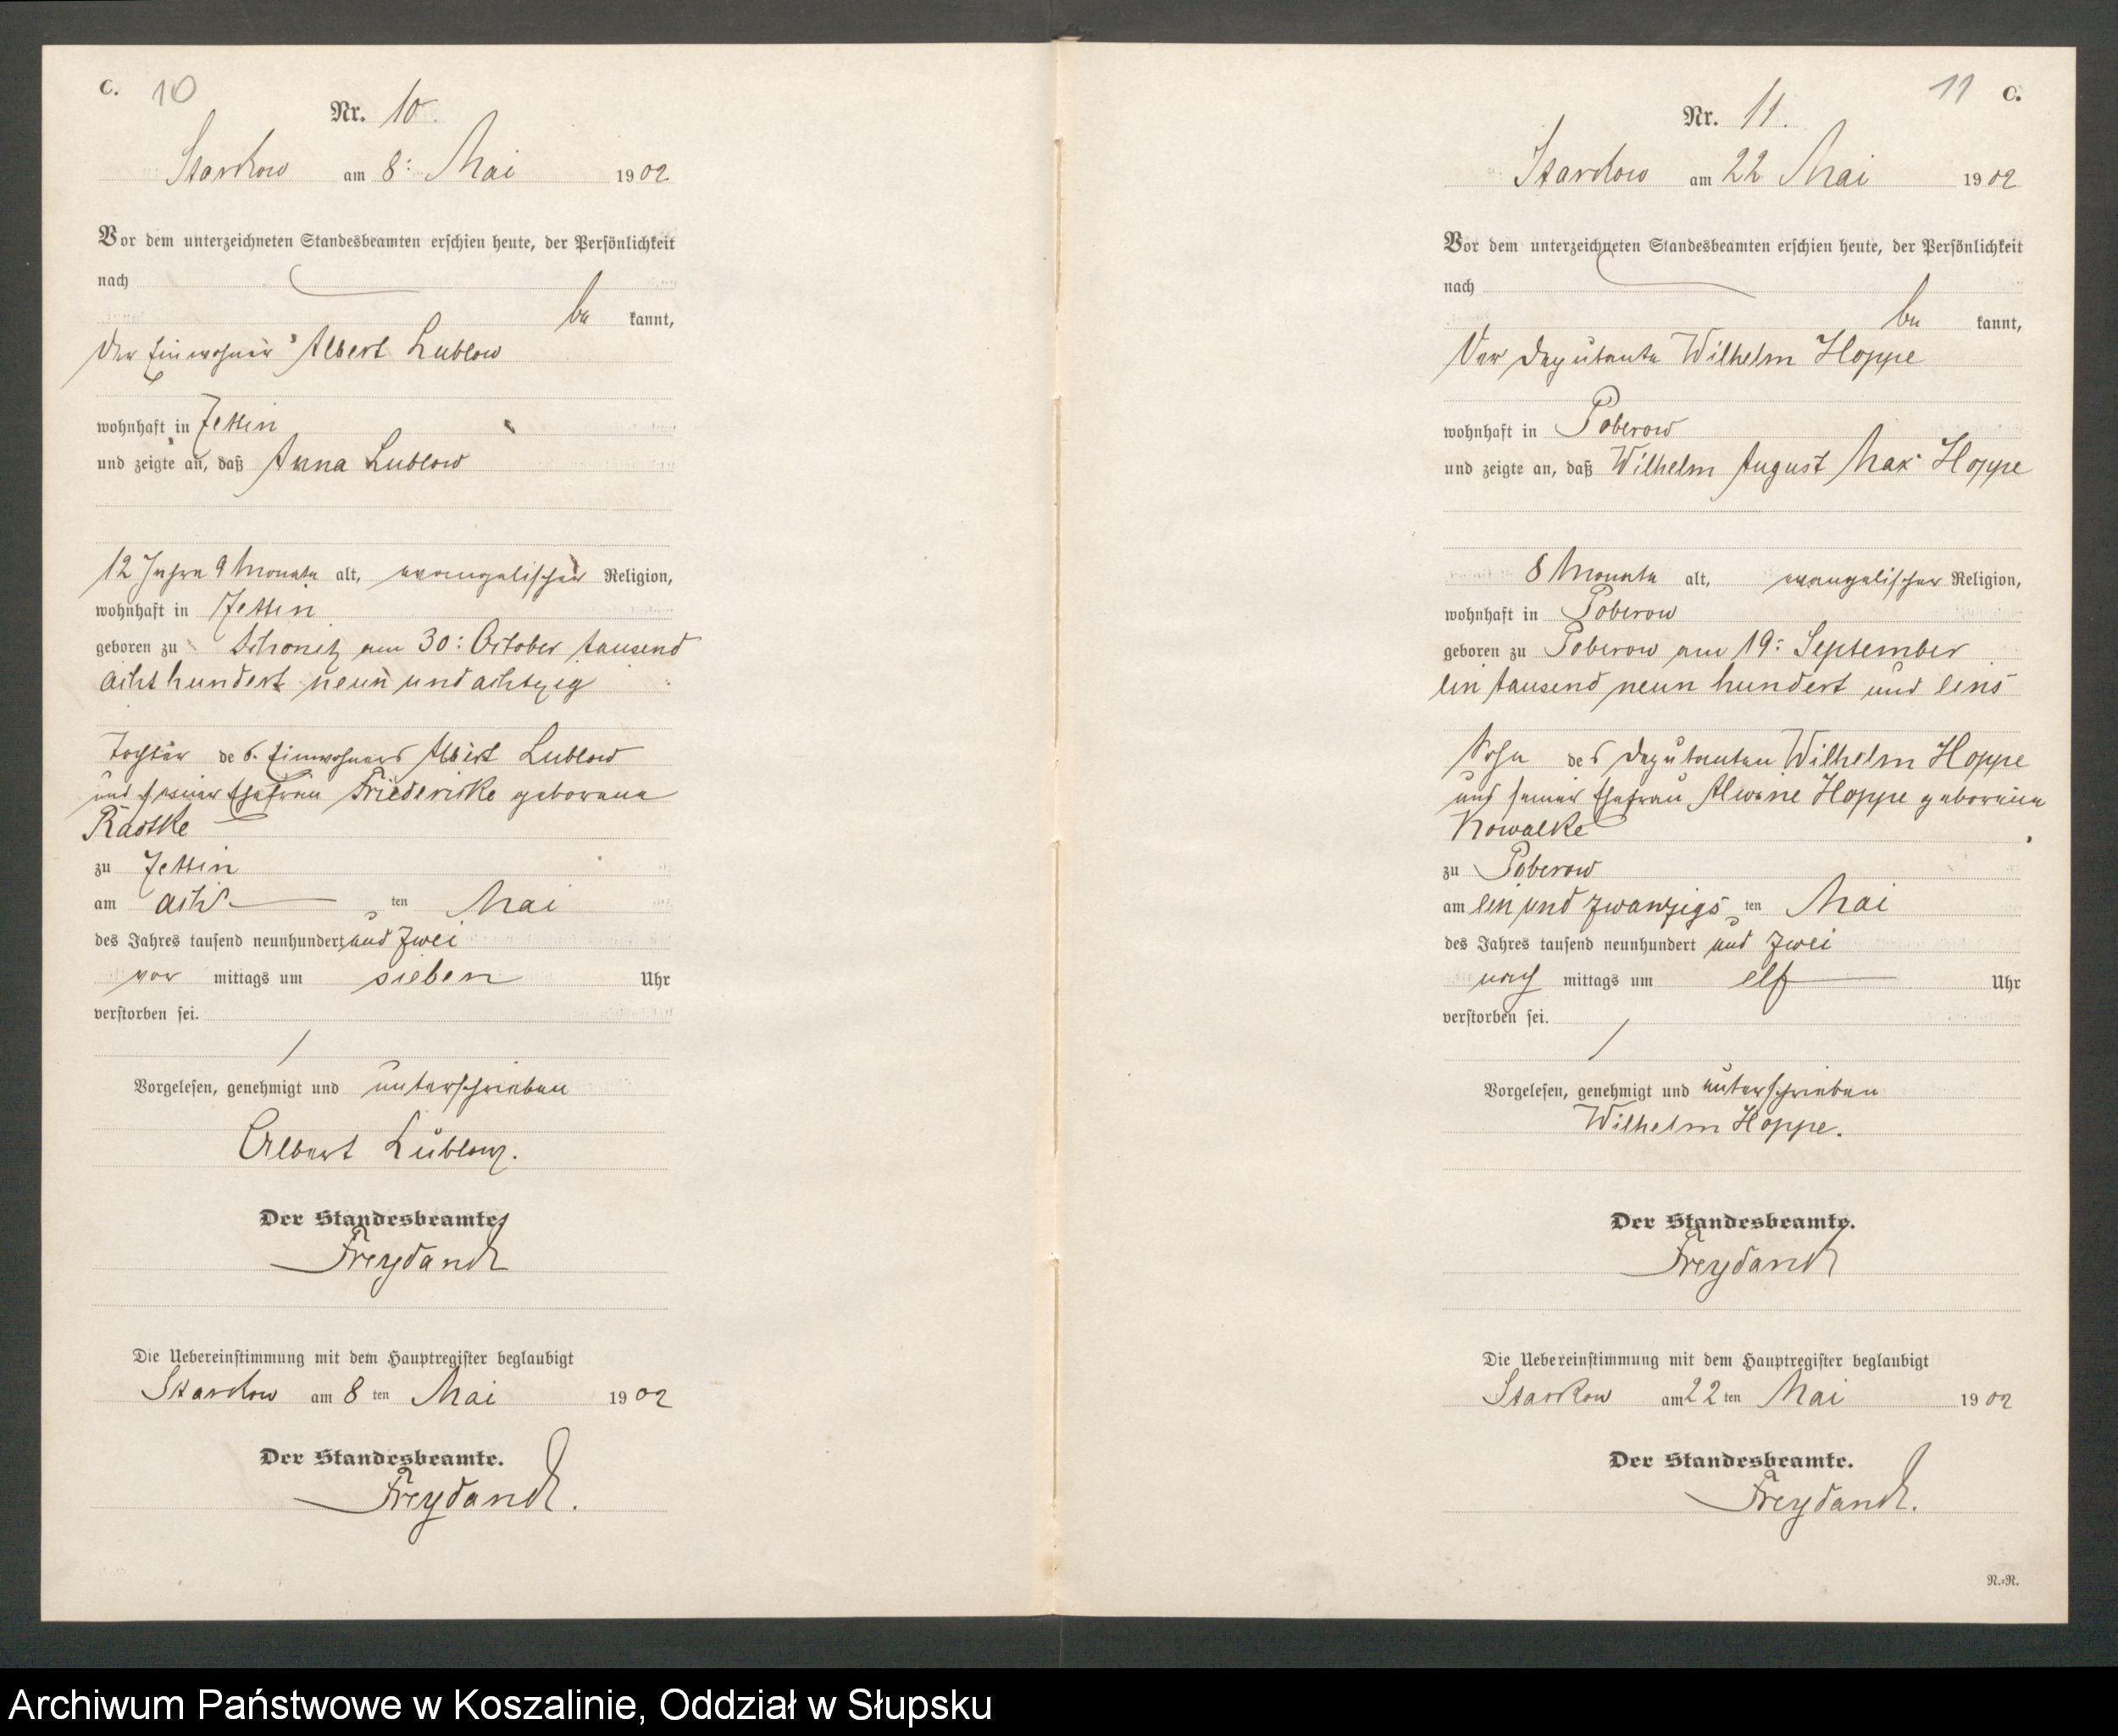 C. 10
Nr. 10.
Starkow am 8: Mai 1902
Vor dem unterzeichneten Standesbeamten erschien heute, der Persönlichkeit
nach
be kannt,
Der Einwohner Albert Lublow
wohnhaft in Zettin
und zeigte an, daß Anna Lublow
12 Jahre 9 Monate alt, evangelischer Religion,
wohnhaft in Zettin
geboren zu am 30: October tausend
acht hundert neun und achtzig
Tochter des Einwohners Albert Lublow
und seiner Ehefrau Friedericke geborene
Radtke
zu Zettin
am acht ten Mai
des Jahres tausend neunhundert und zwei
vor mittags um sieben Uhr
verstorben sei.
Vorgelesen, genehmigt und unterschrieben
Albert Lüblow.
Der Standesbeamte.
Freydanck
Die Uebereinstimmung mit dem Hauptregister beglaubigt
Starckow am 8 ten Mai 1902
Der Standesbeamte.
Freydanck.
11 C.
Nr. 11.
Starckow am 22 Mai 1902
Vor dem unterzeichneten Standesbeamten erschien heute, der Persönlichkeit
nach
be kannt,
Der Deputante Wilhelm Hoppe
wohnhaft in Poberow
und zeigte an, daß Wilhelm August Max Hoppe
8 Monate alt, evangelischer Religion,
wohnhaft in Poberow
geboren zu Poberow am 19: September
ein tausend neun hundert und eins
Sohn des Deputanten Wilhelm Hoppe
und seiner Ehefrau Alwine Hoppe geborene
Kowalke
zu Poberow
am ein und zwanzigs ten Mai
des Jahres tausend neunhundert und zwei
nach mittags um elf Uhr
verstorben sei.
Vorgelesen, genehmigt und unterschrieben
Wilhelm Hoppe.
Der Standesbeamte.
Freydanck
Die Uebereinstimmung mit dem Hauptregister beglaubigt
Starkow am 22 ten Mai 1902
Der Standesbeamte.
Freydanck.
N.=R.
Archiwum Państwowe w Koszalinie, Oddział w Słupsku